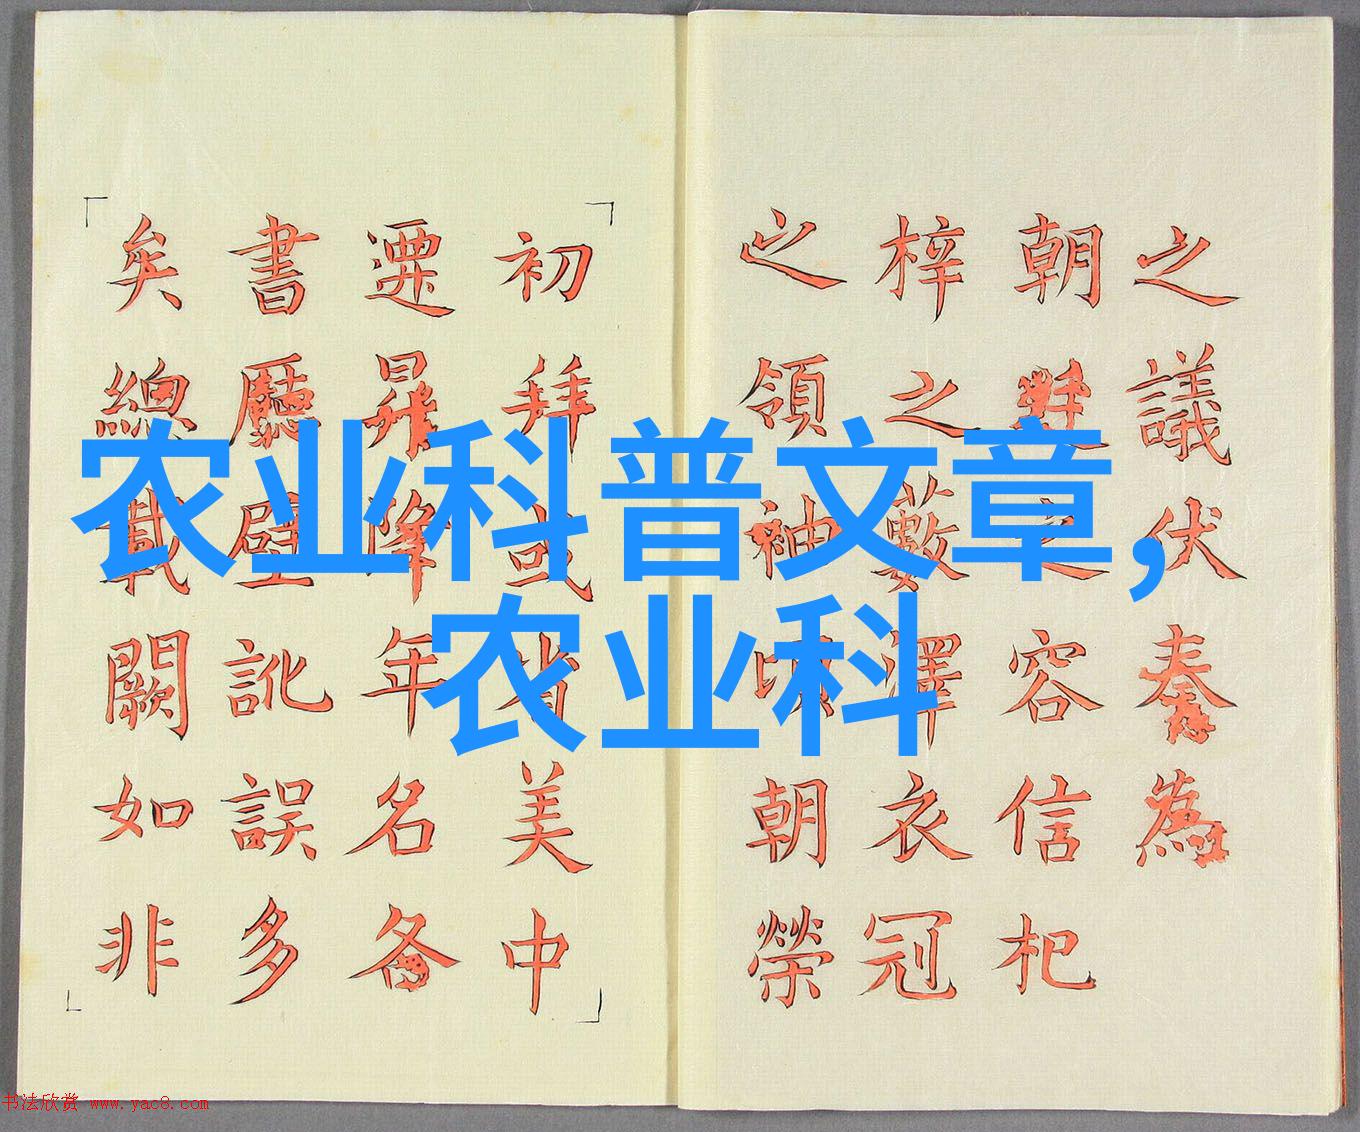 农业科普文章，
农业科
之議伏奏為
朝之容信杞
梓之藪澤衣冠
之領袖以朝榮
初拜或省美中
遷昇降年名各
書廳壁訛誤多
矣總載闕如非
书法欣赏 www.yac8.com